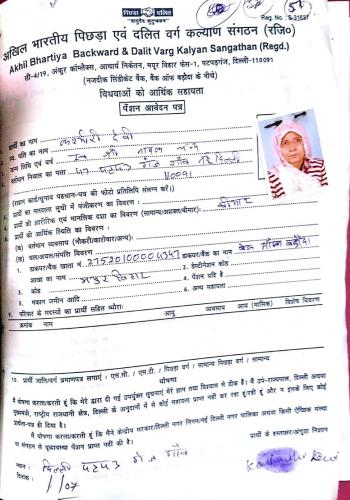 पिछड़ा दलित
"वसुधैव कुटुम्बकम्"
Reg. No. S-31637
अखिल भारतीय पिछड़ा एवं दलित वर्ग कल्याण संगठन (रजि०)
Akhil Bhartiya Backward & Dalit Varg Kalyan Sangathan (Regd.)
सी-4/19, अंकुर कॉम्प्लैक्स, आचार्य निकेतन, मयूर विहार फेस-1, पटपड़गंज, दिल्ली-110091
(नजदीक सिंडीकेट बैंक, बैंक ऑफ बड़ौदा के नीचे)
विधवाओं को आर्थिक सहायता
पेंशन आवेदन पत्र
प्रार्थी का नाम देवी
स्व. पति का नाम स्व श्री
जन्म तिथि एवं वर्ष
वर्तमान निवास का पता गाँव दिल्ली
110091
(राशन कार्ड/चुनाव पहचान-पत्र की फोटो प्रतिलिपि संलग्न करें।)
प्रार्थी का मतदाता सूची में पंजीकरण का विवरण :
प्रार्थी की शारीरिक एवं मानसिक दशा का विवरण (सामान्य/अशक्त/बीमार) : बीमार
प्रार्थी की आर्थिक स्थिति का विवरण :
(क) वर्तमान व्यवसाय (नौकरी/कारोबार/अन्य)
(ख) चल/अचल/संपत्ति विवरण
1. डाकघर/बैंक खाता नं. 27520100004347 डाकघर/बैंक का नाम बैंक ऑफ बड़ौदा
शाखा का नाम मयूर विहार 2. डेस्टीनेशन कोड
3. कोड 4. पेंशन यदि है
5. मकान जमीन आदि 6. अन्य सहायता
9. परिवार के सदस्यों का प्रार्थी सहित ब्यौरा:
क्रमांक नाम आयु व्यवसाय आय (मासिक) विशेष विवरण
10. प्रार्थी जाति/वर्ग प्रमाणपत्र लगाएं : एस.सी. / एस.टी. / पिछड़ा वर्ग / सामान्य पिछड़ा वर्ग / सामान्य
घोषणा
मैं घोषणा करता/करती हूं कि मेरे द्वारा दी गई उपर्युक्त सूचनाएं मेरे ज्ञान तथा विश्वास से ठीक है। मैं उप-राज्यपाल, दिल्ली अथवा
मुख्यमंत्री, राष्ट्रीय राजधानी क्षेत्र, दिल्ली के अनुदानों में से कोई सहायता प्राप्त नहीं कर रहा हूं/रही हूं और न इसके लिए कोई
प्रार्थना-पत्र ही दिया है।
मैं घोषणा करता/करती हूं कि मैंने केन्द्रीय सरकार/दिल्ली नगर निगम/नई दिल्ली नगर पालिका अथवा किसी ऐच्छिक संस्था
या संगठन से वृद्धावस्था पेंशन प्राप्त नहीं की है।
प्रार्थी के हस्ताक्षर/अंगूठा निशान
स्थान : दिल्ली गाँव
दिनांक :